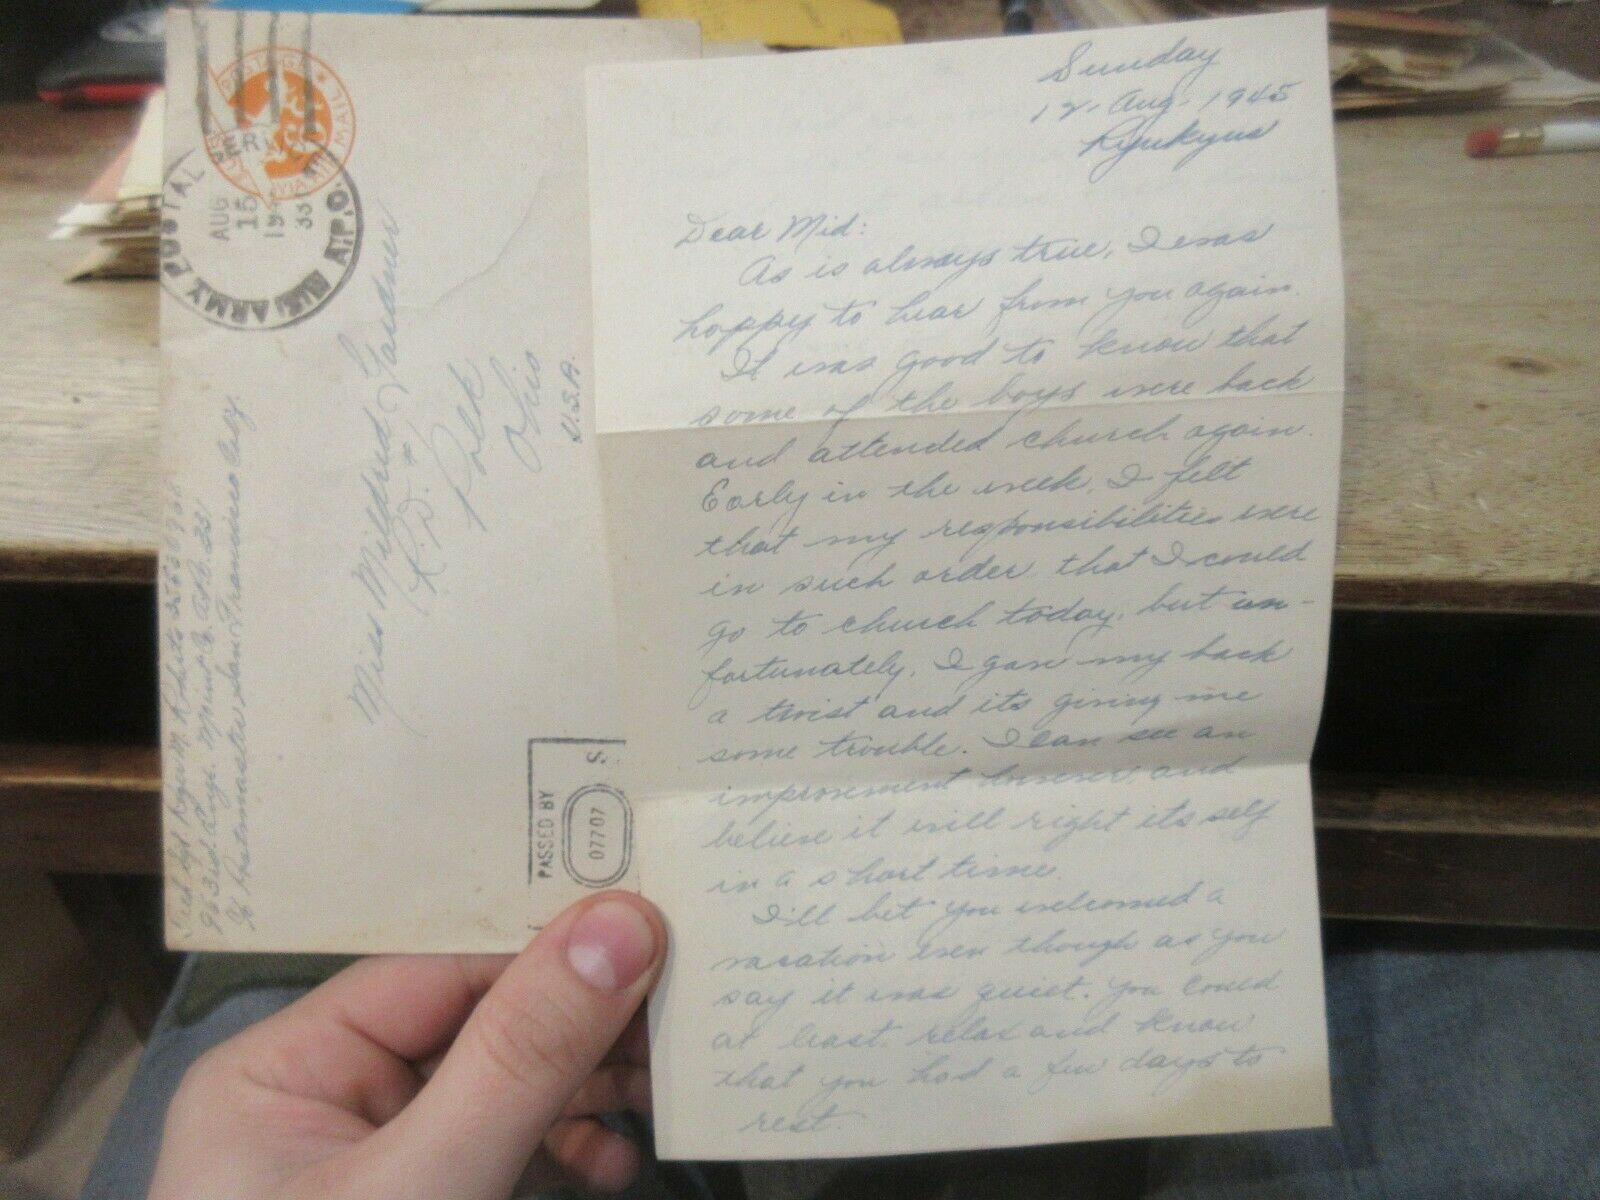 Sunday
12, Aug. 1945
Ryukyus
Dear Mid:
As is always true, I was
happy to hear from you again.
It was good to know that
some of the boys were back
and attended church again.
Early in the week, I felt
that my responsibilities were
in such order that I could
go to church today, but un-
fortunately, I gave my back
a twist and its giving me
some trouble. I can see an
improvement however, and
believe it will right its self
in a short time
I'll bet you welcomed a
vacation even though as you
say it was quiet. You could
at least relax and know
that you had a few days to
rest.
U.S. POSTAGE
VIA AIR MAIL
U.S. ARMY POSTAL SERVICE
A.P.O.
AUG
15
19
331
Miss Mildred Gardner
R.D. #1
Polk
Ohio
U.S.A.
Tech Sgt Roger M. Roberts
983rd Engr. Maint Co. APO. 331
℅ Postmaster San Francisco Calif.
PASSED BY
07707
S.